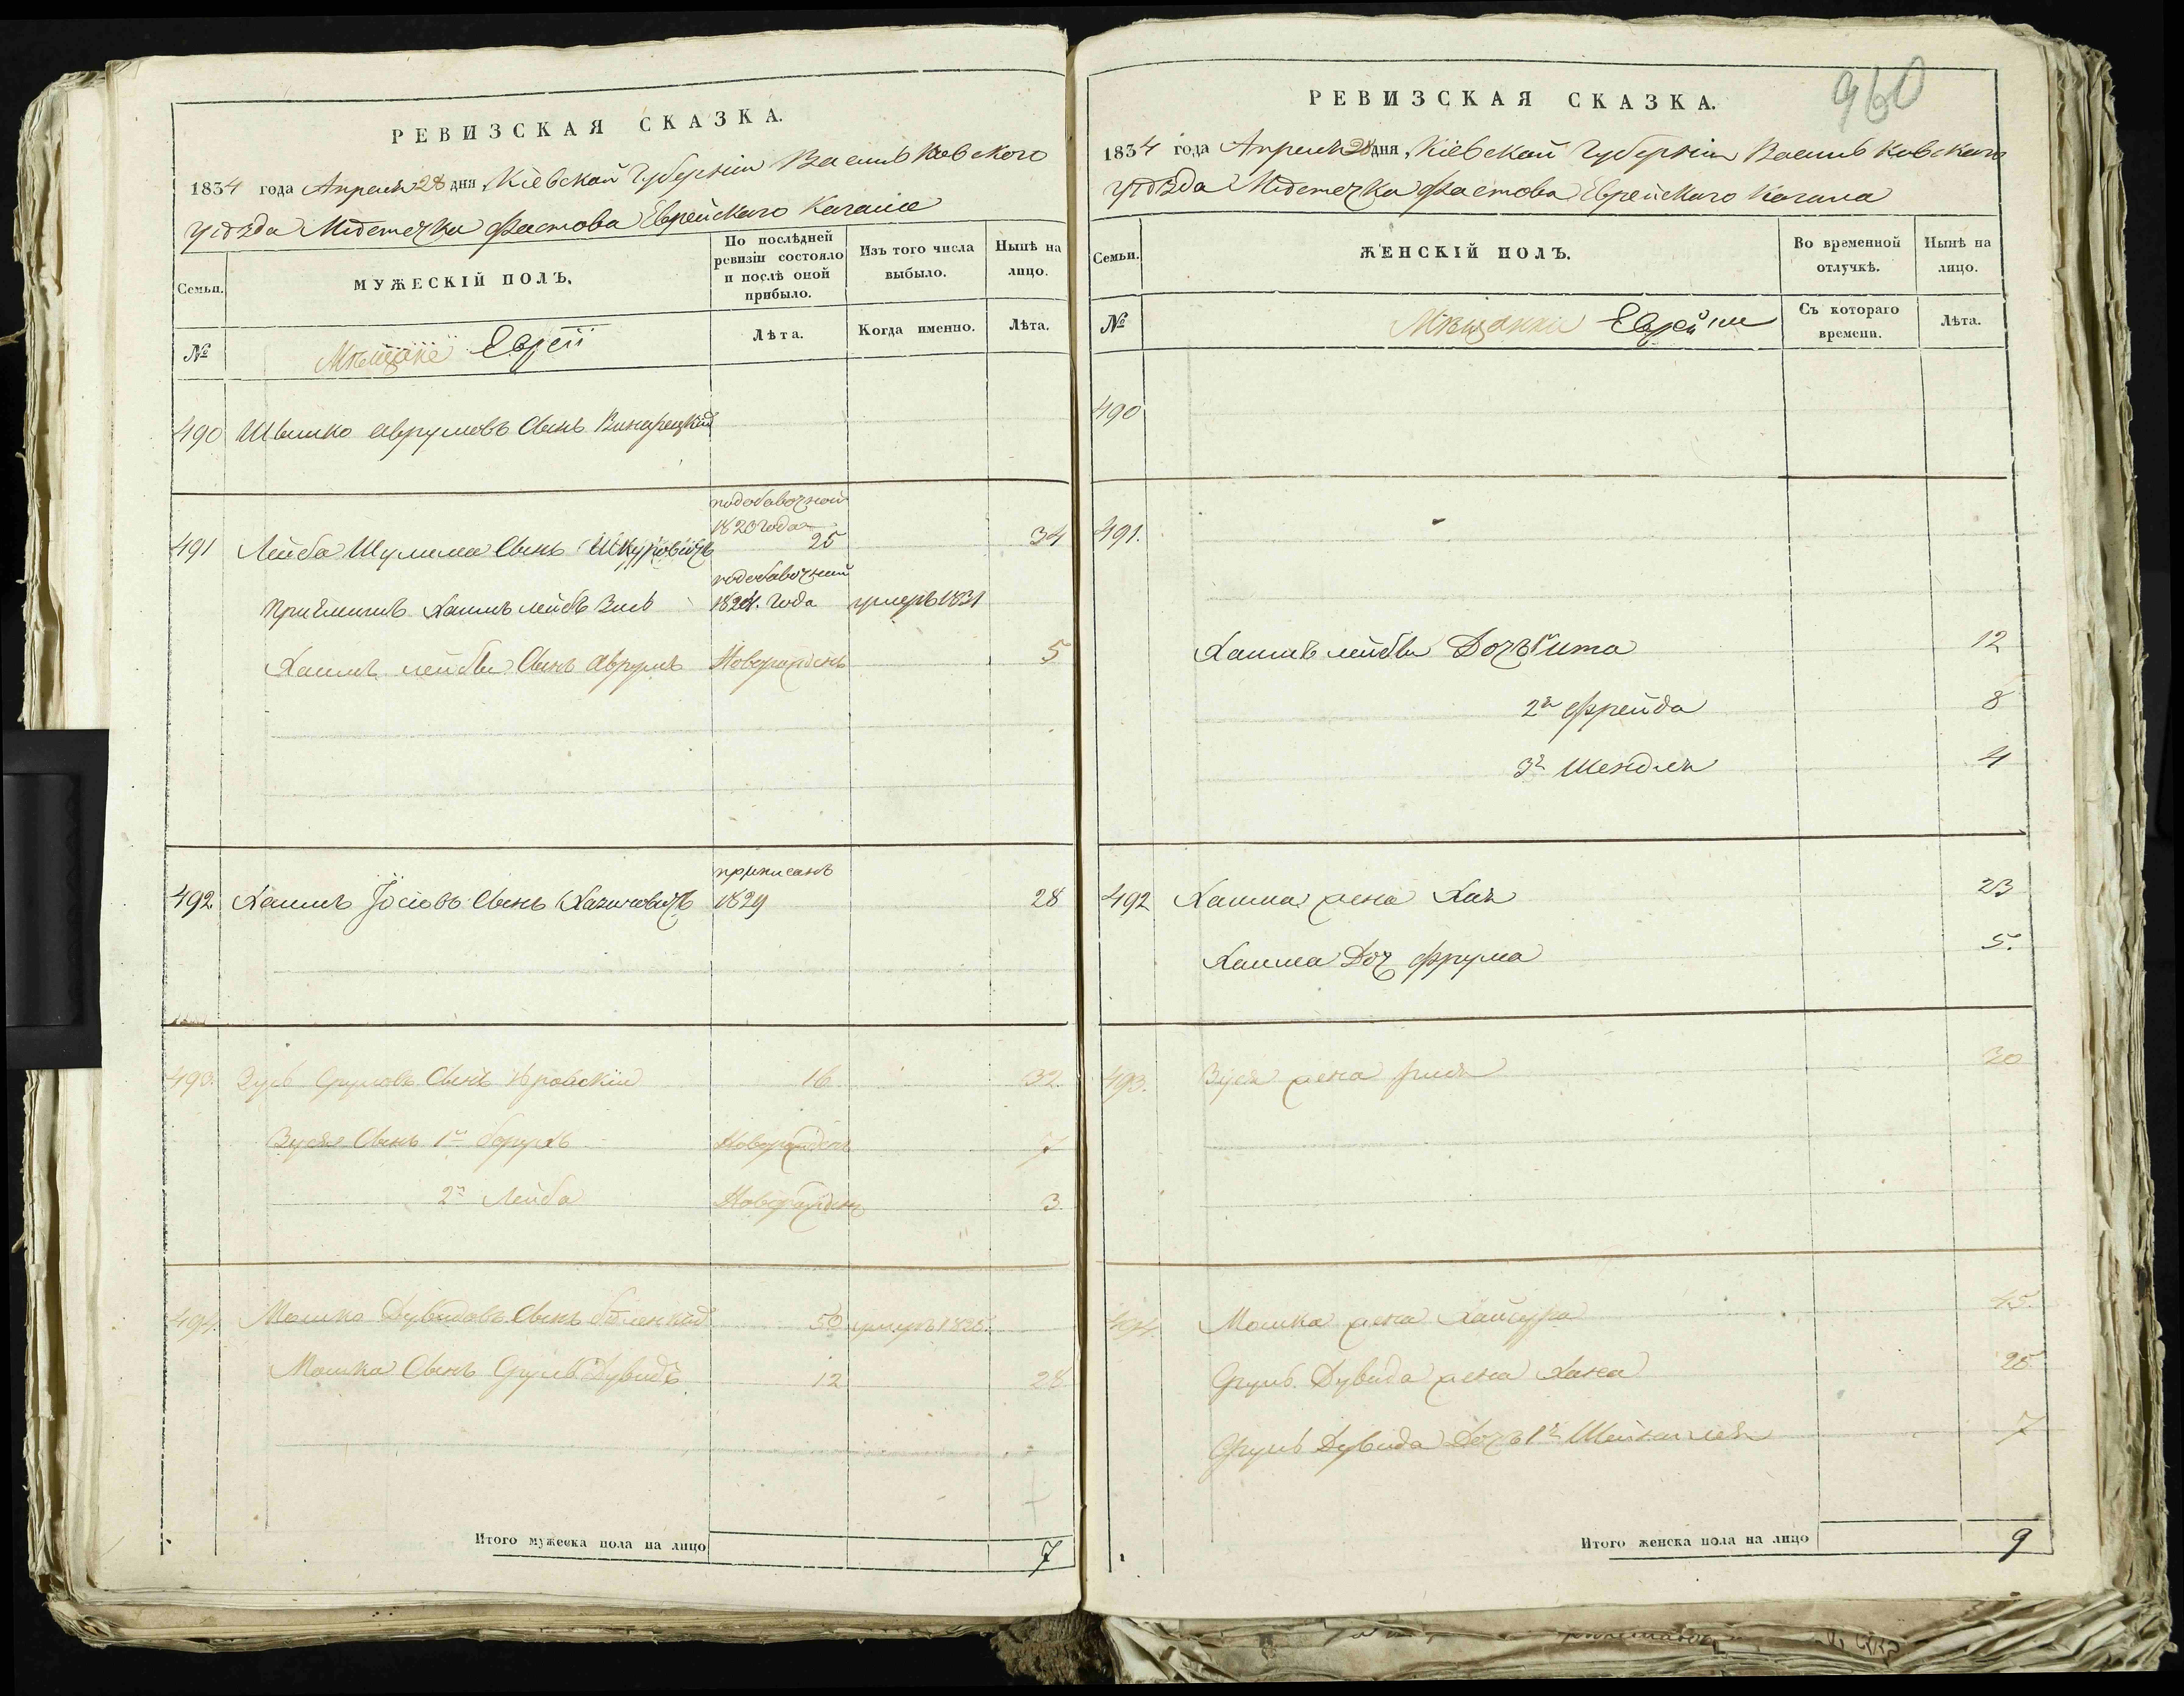 РЕВИЗСКАЯ СКАЗКА.
1834 года Апреля 28 дня, Кіевской Губерніи Васильковского
уѣзда Мѣстечка Фастова Еврейскаго Кагала
Семьи.
МУЖЕСКІЙ ПОЛЪ.
По послѣдней ревизіи состояло и послѣ оной прибыло.
Изъ того числа выбыло.
Нынѣ на лицо.
№
Мѣщане Евреи
Лѣта.
Когда именно.
Лѣта.
490 Аврумовъ Сынъ
подобавочной
1820 года
491 Лейба Шулима Сынъ Шкуровичъ 25 34
подобавочной
Хаимъ Лейбъ 1824. года умеръ 1831
Хаимъ Лейбы Сынъ Аврумъ Новорожденъ 5
приписанъ
492 Хаимъ Іосіовъ Сынъ 1829 28
493. Зусь Сруловъ Сынъ 16 32.
Зуся Сынъ 1й Борухъ Новорожденъ 7
2й Лейба Новорожден 3.
494. Мошко Дувидовъ Сынъ 50 умеръ 1828.
Мошка Сынъ Сруль Дувидъ 12 28
Итого мужеска пола на лицо 7
960
РЕВИЗСКАЯ СКАЗКА.
1834 года Апреля 28 дня, Кіевской Губерніи Васильковскаго
уѣзда Мѣстечка Фастова Еврейскаго Кагала
Семьи.
ЖЕНСКІЙ ПОЛЪ.
Во временной отлучкѣ.
Нынѣ на лицо.
№
Мѣщанки Еврейки
Съ котораго времени.
Лѣта.
490
491.
Хаимъ Лейбы Дочь 12
2я Фрейда 8
3я Шендля 4
492 Хаима жена Хая 23
Хаима Доч Фрума 5.
493. Зуся жена 30
494. Мошка жена 45.
Сруль Дувида жена Хана 25
Сруль Дувида Дочь 1я 7
Итого женска пола на лицо 9